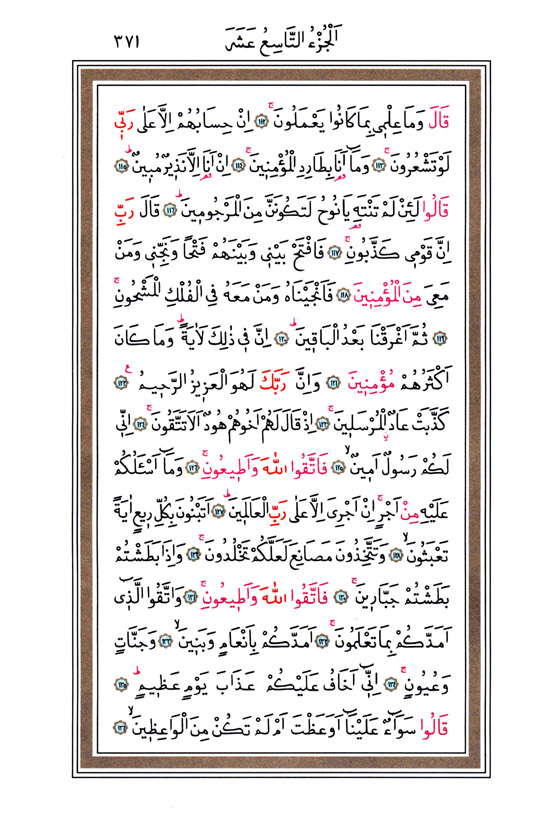 اَلْجُزْءُ التَّاسِعُ عَشَرَ ٣٧١
قَالَ وَمَا عِلْمِى بِمَا كَانُوا يَعْمَلُونَۚ ﴿١١٢﴾ اِنْ حِسَابُهُمْ اِلَّا عَلٰى رَبِّى
لَوْ تَشْعُرُونَۚ ﴿١١٣﴾ وَمَٓا اَنَا۬ بِطَارِدِ الْمُؤْمِنِينَۚ ﴿١١٤﴾ اِنْ اَنَا۬ اِلَّا نَذِيرٌ مُبِينٌۜ ﴿١١٥﴾
قَالُوا لَئِنْ لَمْ تَنْتَهِ يَا نُوحُ لَتَكُونَنَّ مِنَ الْمَرْجُومِينَۜ ﴿١١٦﴾ قَالَ رَبِّ
اِنَّ قَوْمِى كَذَّبُونِۚ ﴿١١٧﴾ فَافْتَحْ بَيْنِى وَبَيْنَهُمْ فَتْحًا وَنَجِّنِى وَمَنْ
مَعِىَ مِنَ الْمُؤْمِنِينَ ﴿١١٨﴾ فَاَنْجَيْنَاهُ وَمَنْ مَعَهُ فِى الْفُلْكِ الْمَشْحُونِۚ
﴿١١٩﴾ ثُمَّ اَغْرَقْنَا بَعْدُ الْبَاقِينَۜ ﴿١٢٠﴾ اِنَّ فِى ذٰلِكَ لَاٰيَةًۜ وَمَا كَانَ
اَكْثَرُهُمْ مُؤْمِنِينَ ﴿١٢١﴾ وَاِنَّ رَبَّكَ لَهُوَ الْعَزِيزُ الرَّحِيمُ ﴿١٢٢﴾ ع
كَذَّبَتْ عَادٌۨ الْمُرْسَلِينَۚ ﴿١٢٣﴾ اِذْ قَالَ لَهُمْ اَخُوهُمْ هُودٌ اَلَا تَتَّقُونَۚ ﴿١٢٤﴾ اِنِّى
لَكُمْ رَسُولٌ اَمِينٌۙ ﴿١٢٥﴾ فَاتَّقُوا اللّٰهَ وَاَطِيعُونِۚ ﴿١٢٦﴾ وَمَٓا اَسْئَلُكُمْ
عَلَيْهِ مِنْ اَجْرٍۚ اِنْ اَجْرِىَ اِلَّا عَلٰى رَبِّ الْعَالَمِينَۜ ﴿١٢٧﴾ اَتَبْنُونَ بِكُلِّ رِيعٍ اٰيَةً
تَعْبَثُونَۙ ﴿١٢٨﴾ وَتَتَّخِذُونَ مَصَانِعَ لَعَلَّكُمْ تَخْلُدُونَۚ ﴿١٢٩﴾ وَاِذَا بَطَشْتُمْ
بَطَشْتُمْ جَبَّارِينَۚ ﴿١٣٠﴾ فَاتَّقُوا اللّٰهَ وَاَطِيعُونِۚ ﴿١٣١﴾ وَاتَّقُوا الَّذِٓى
اَمَدَّكُمْ بِمَا تَعْلَمُونَۚ ﴿١٣٢﴾ اَمَدَّكُمْ بِاَنْعَامٍ وَبَنِينَۙ ﴿١٣٣﴾ وَجَنَّاتٍ
وَعُيُونٍۚ ﴿١٣٤﴾ اِنِّٓى اَخَافُ عَلَيْكُمْ عَذَابَ يَوْمٍ عَظِيمٍۜ ﴿١٣٥﴾
قَالُوا سَوَٓاءٌ عَلَيْنَٓا اَوَعَظْتَ اَمْ لَمْ تَكُنْ مِنَ الْوَاعِظِينَۙ ﴿١٣٦﴾